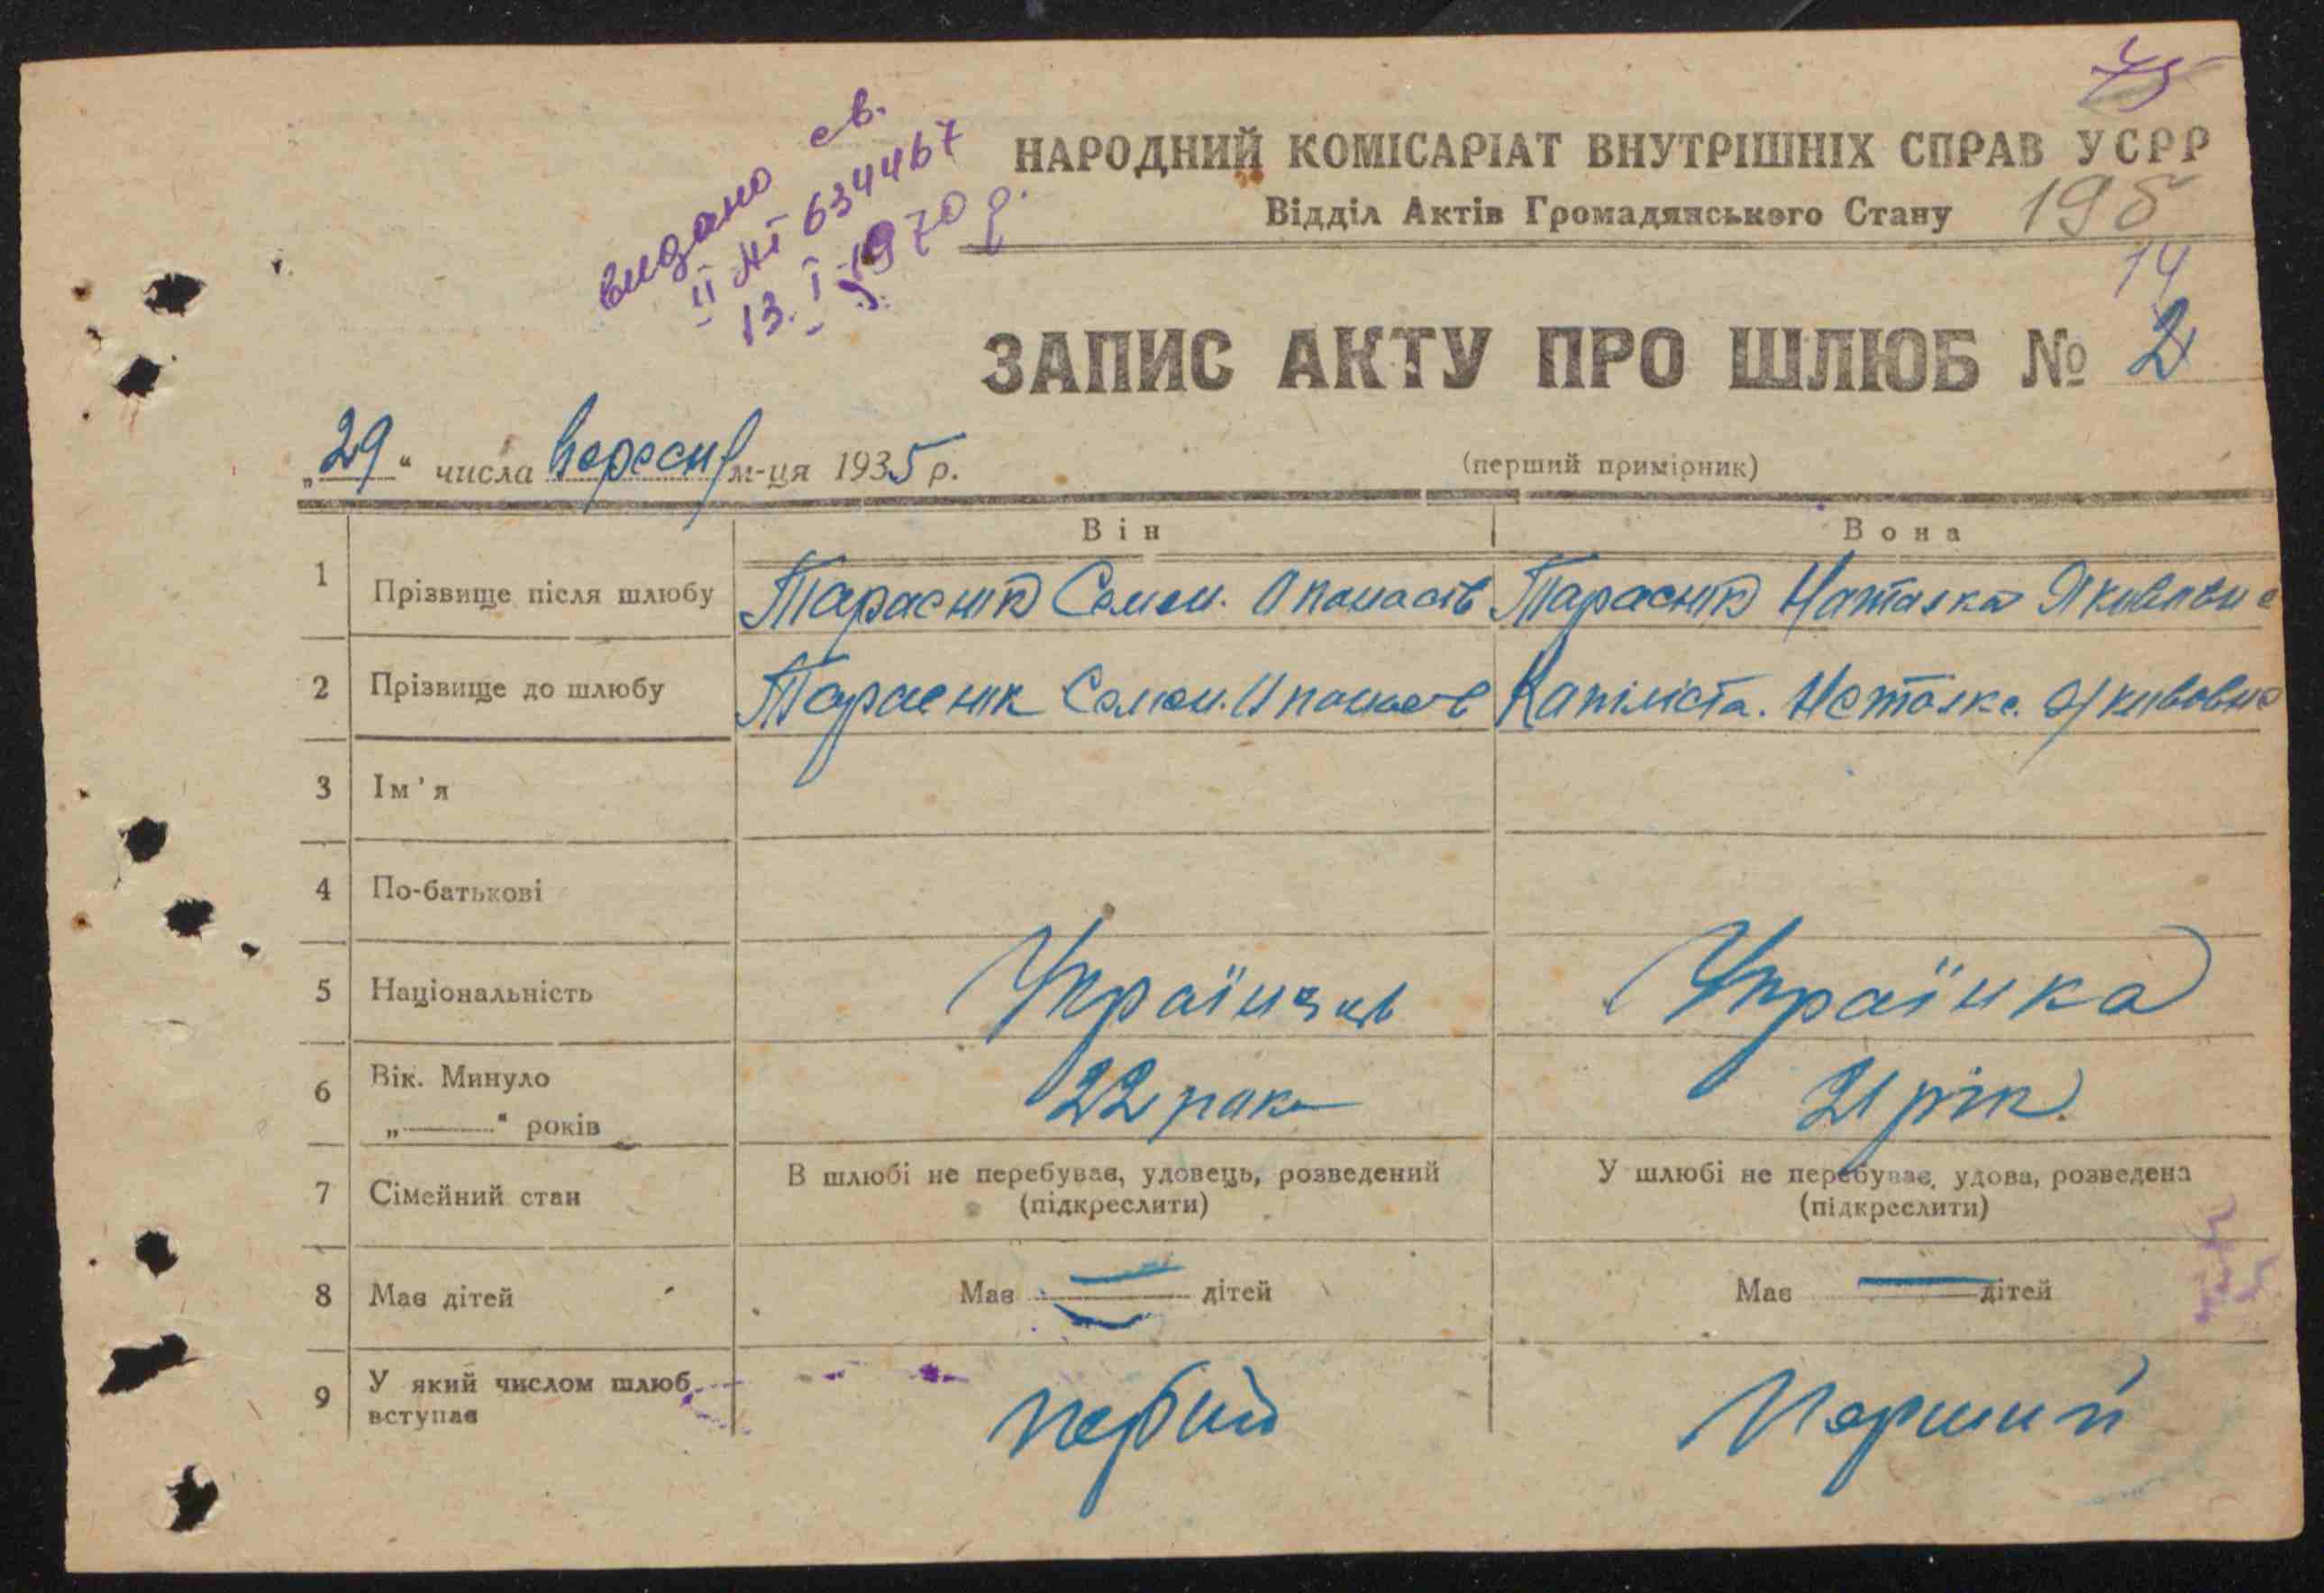 видано св.
II НІ 634467
13. I. 1970 р.
НАРОДНИЙ КОМІСАРІАТ ВНУТРІШНІХ СПРАВ УСРР
Відділ Актів Громадянського Стану
14
ЗАПИС АКТУ ПРО ШЛЮБ № 2
„29“ числа вересня м-ця 1935 р.
(перший примірник)
Він Вона
1 Прізвище після шлюбу Тарасюк Семен. Опанасів Тарасюк Наталка Якивовна
2 Прізвище до шлюбу Тарасюк Семен. Опанасів Капліста. Наталка. Якивовна
3 Ім'я
4 По-батькові
5 Національність Українець Українка
6 Вік. Минуло
„ “ років 22 рак 21 рік.
7 Сімейний стан В шлюбі не перебуває, удовець, розведений У шлюбі не перебуває, удова, розведена
(підкреслити) (підкреслити)
8 Має дітей Має дітей Має дітей
9 У який числом шлюб
вступає первий Перший